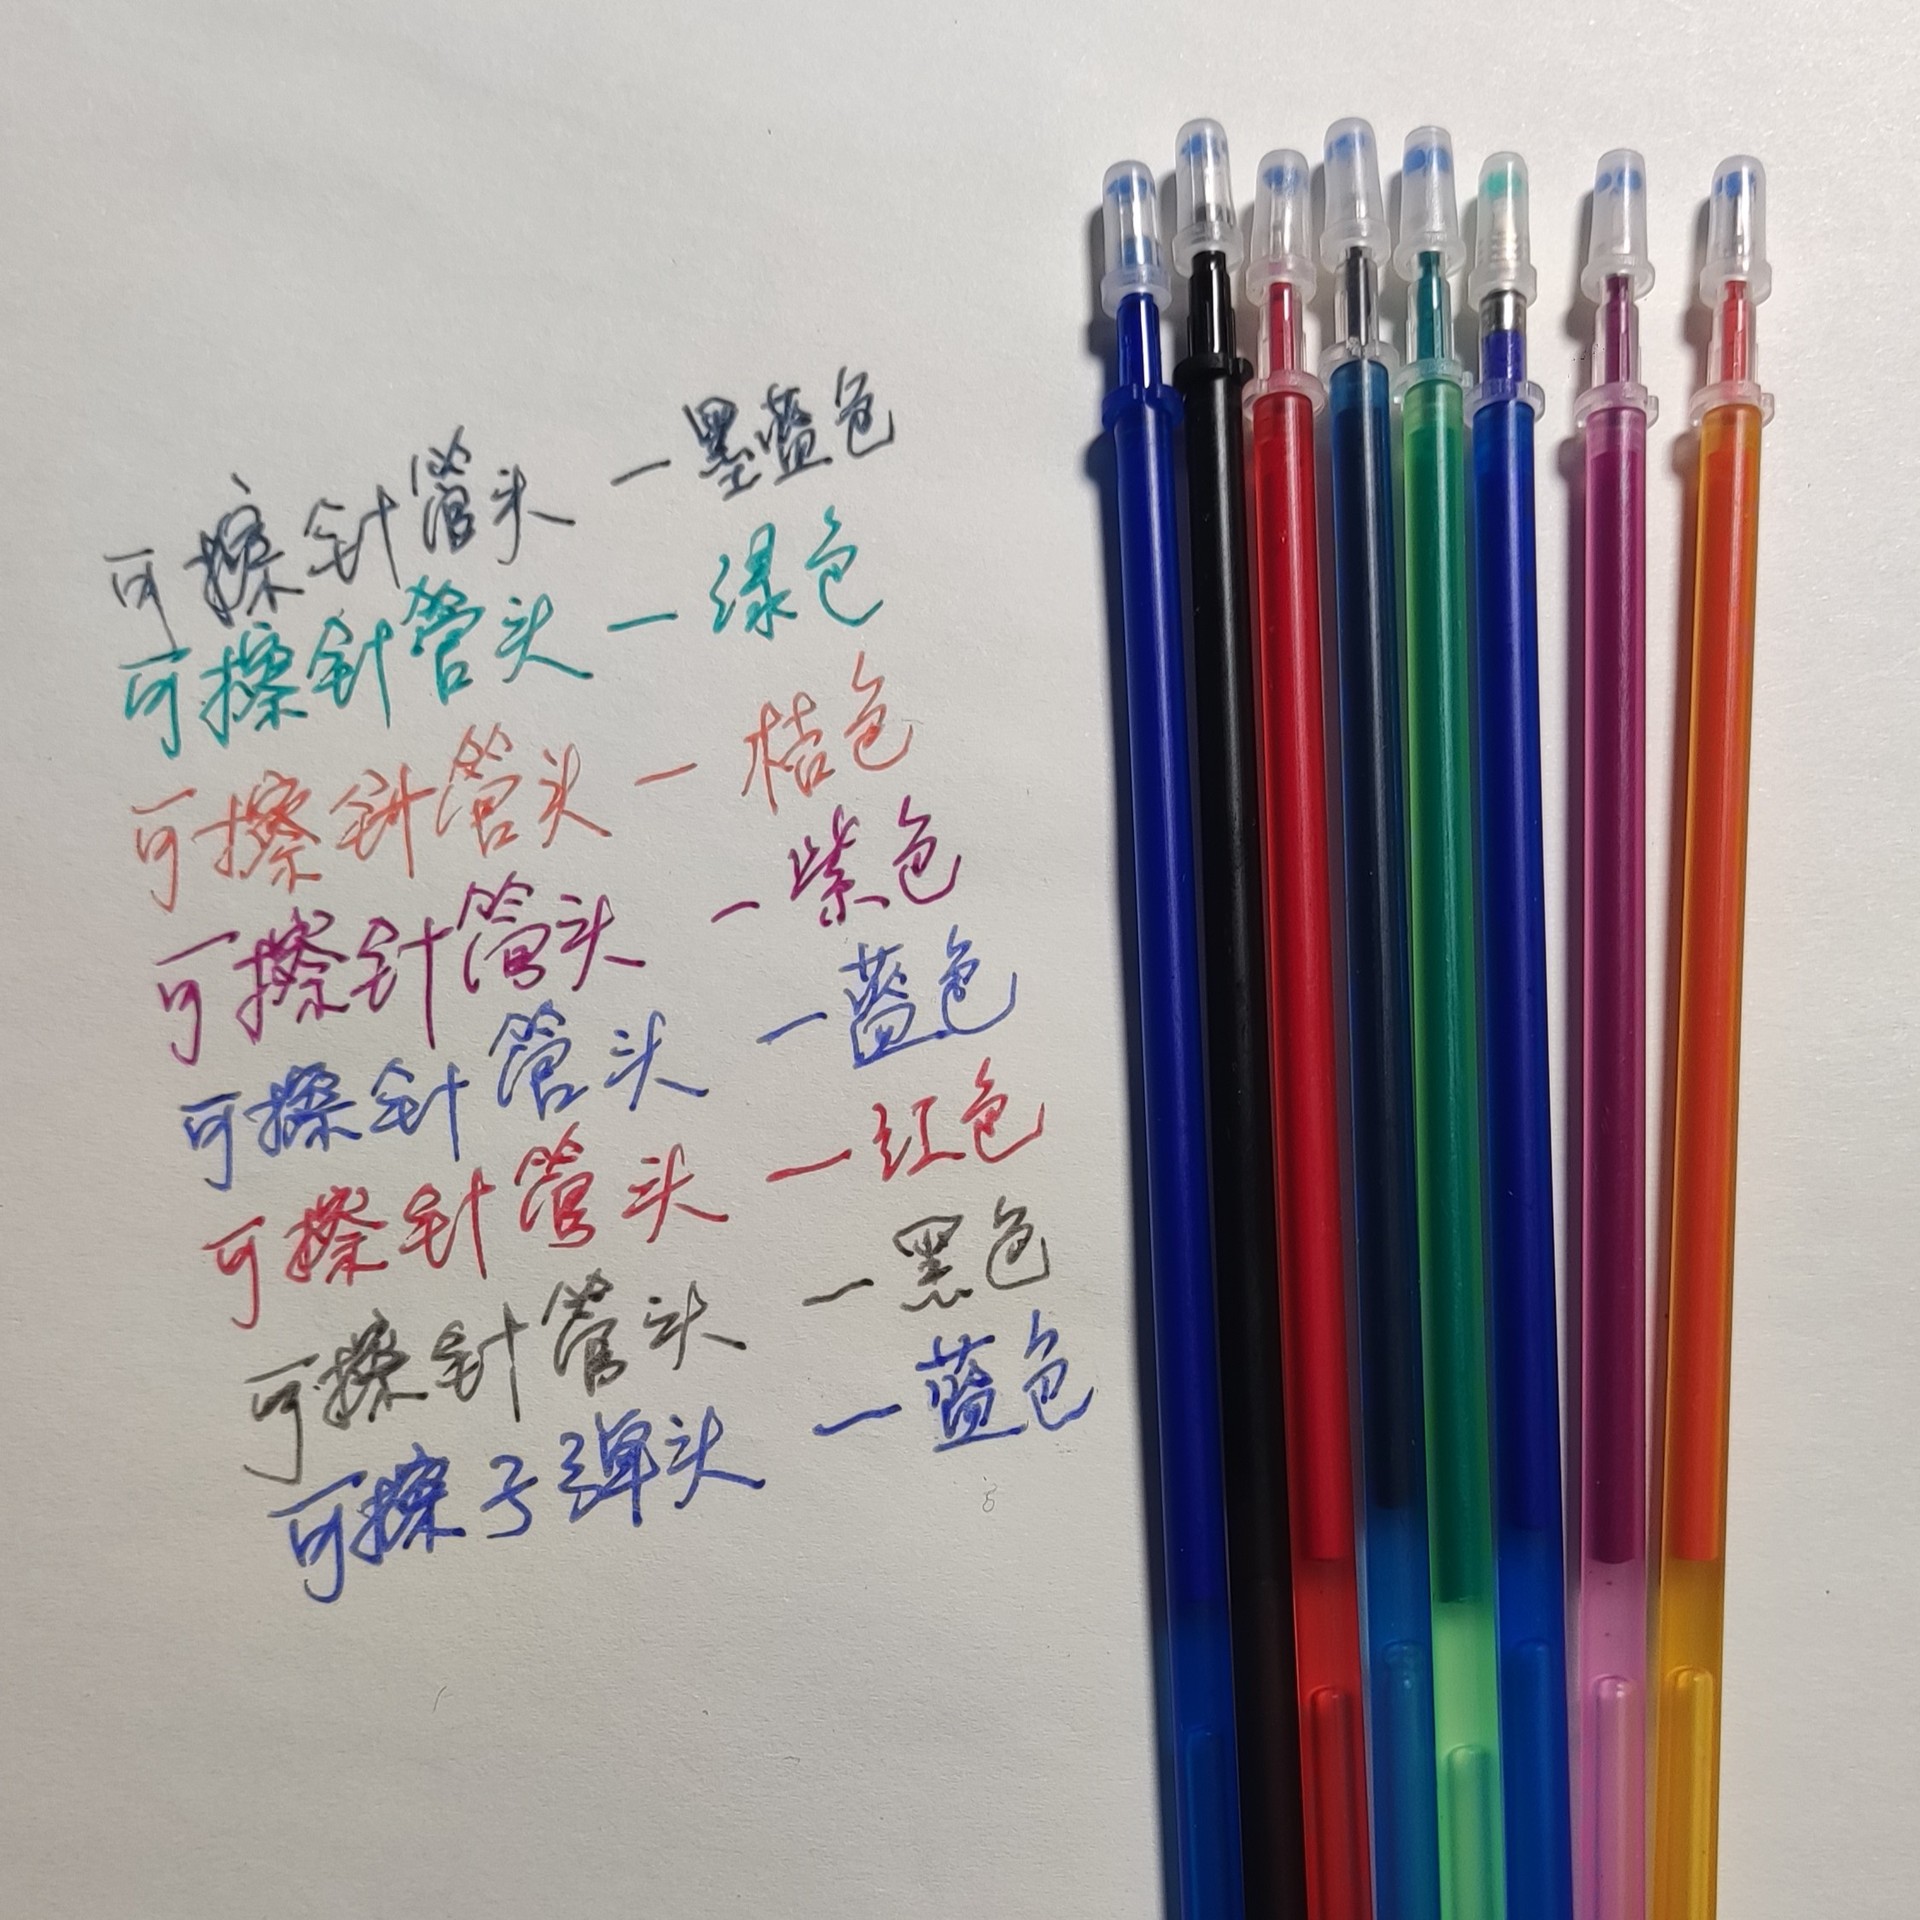 可擦针管头一墨蓝色
可擦针管头一绿色
可擦针管头一桔色
可擦针管头一紫色
可擦针管头一蓝色
可擦针管头一红色
可擦针管头一黑色
可擦子弹头一蓝色